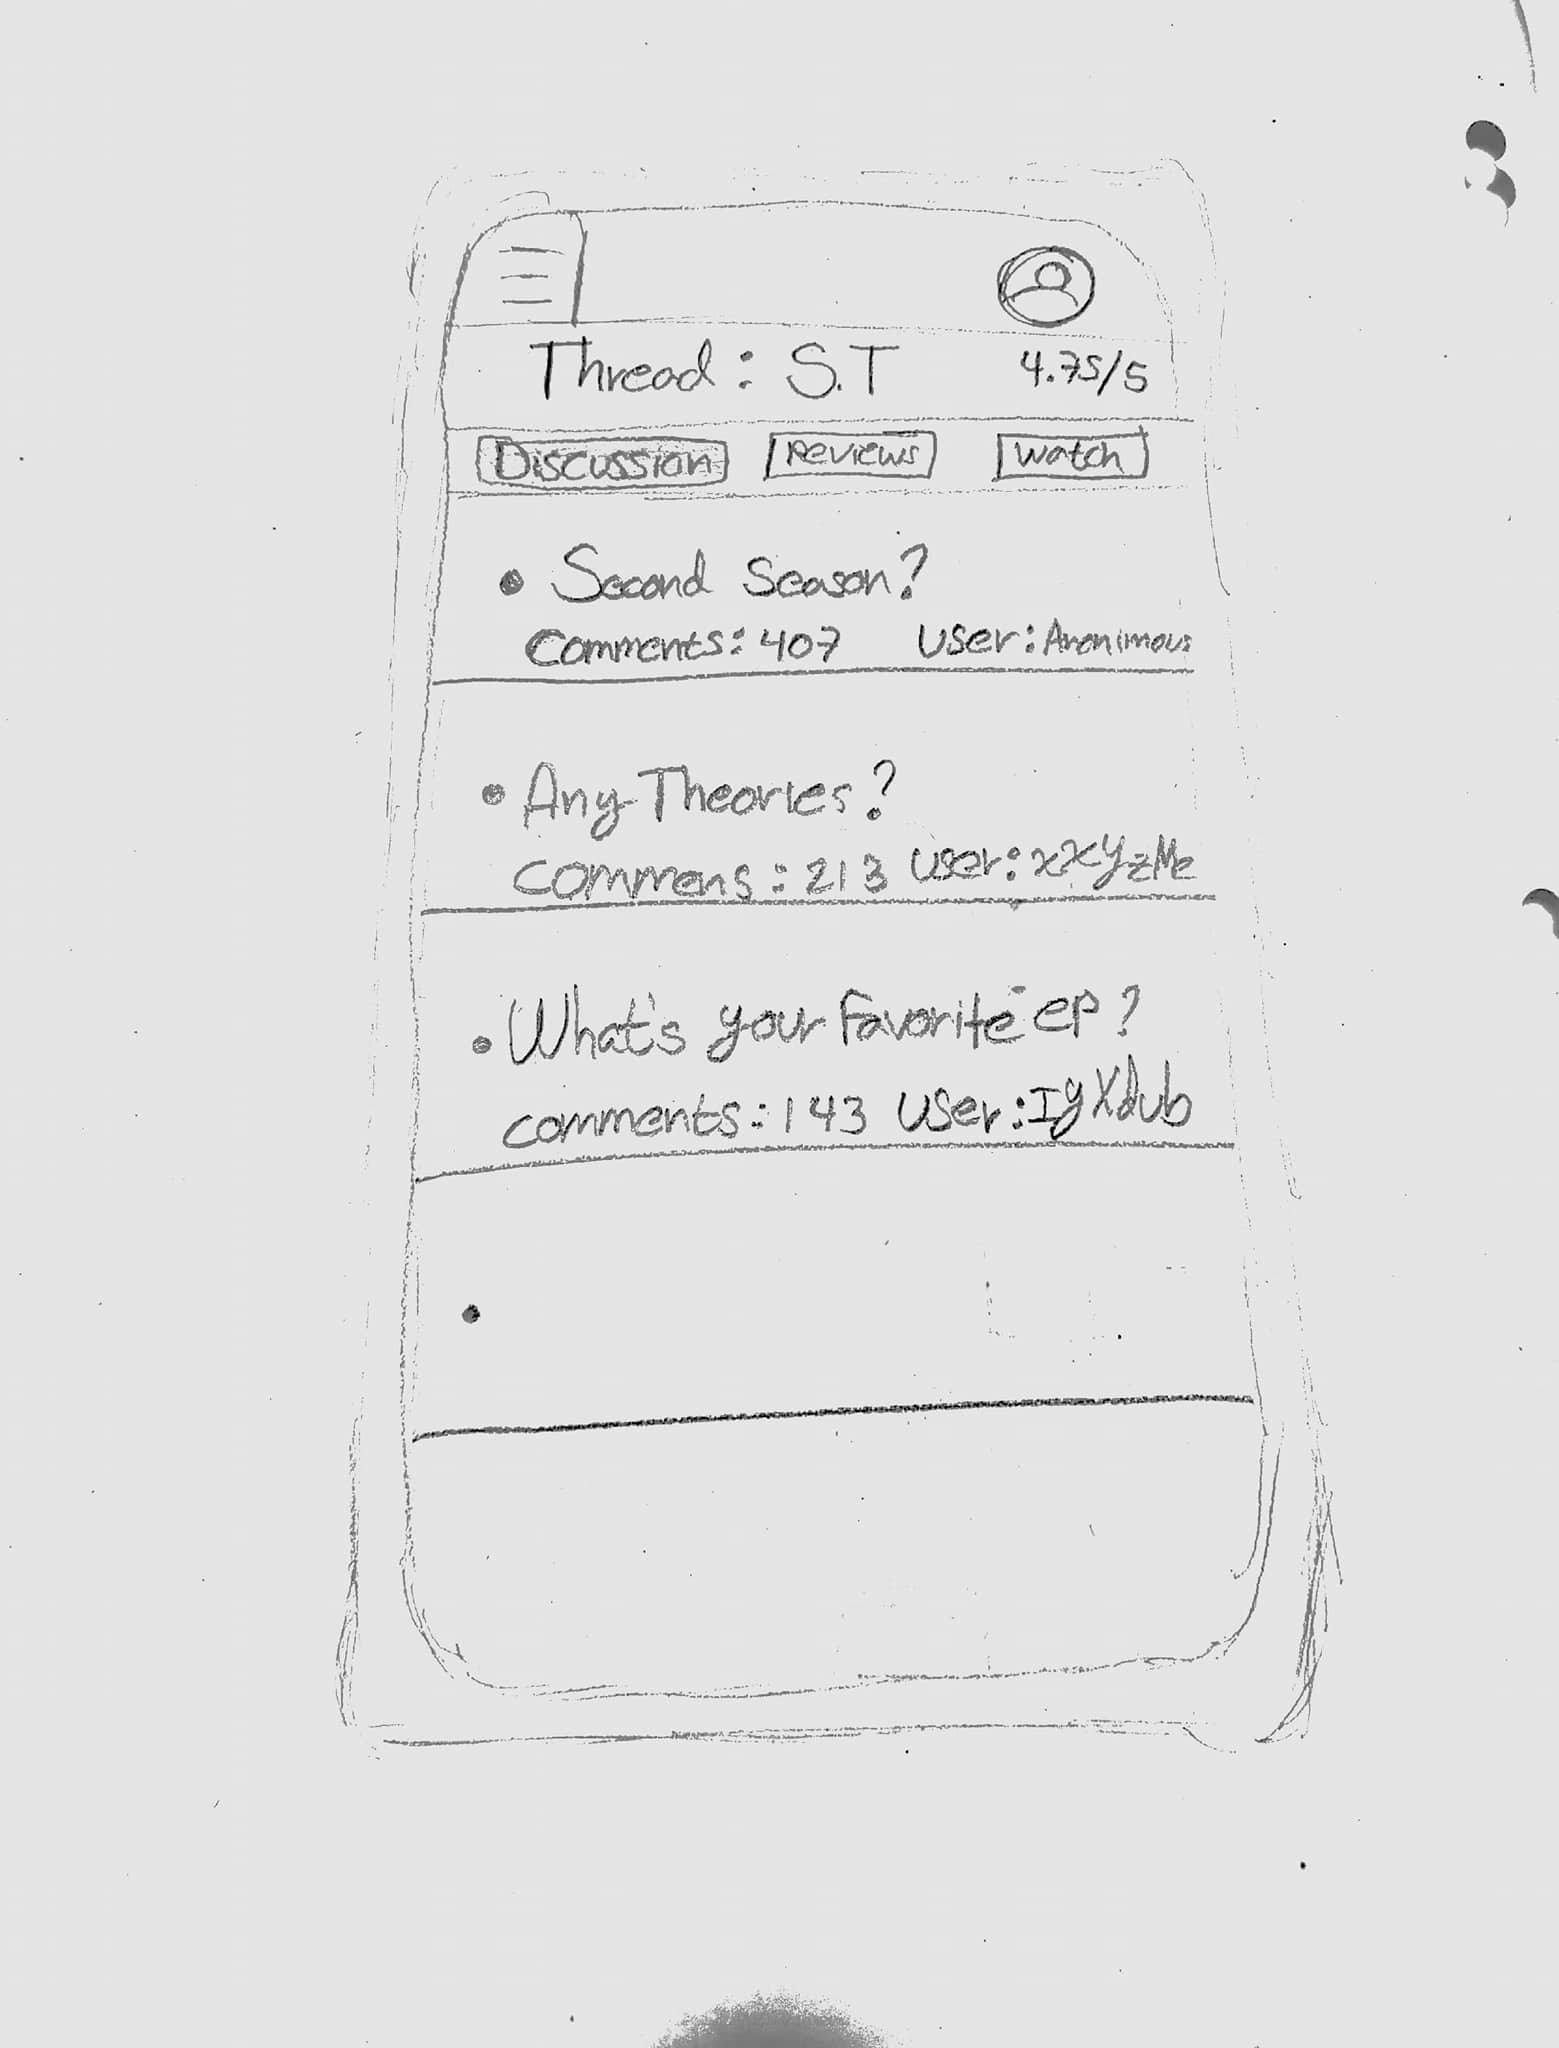 Thread: S.T 4.75/5
Discussion Reviews Watch
• Second Season?
Comments: 407 User: Anonimous
• Any Theories?
Commens: 213 User: xXYzMe
• What's your Favorite ep?
comments: 143 User: IgXdub
•